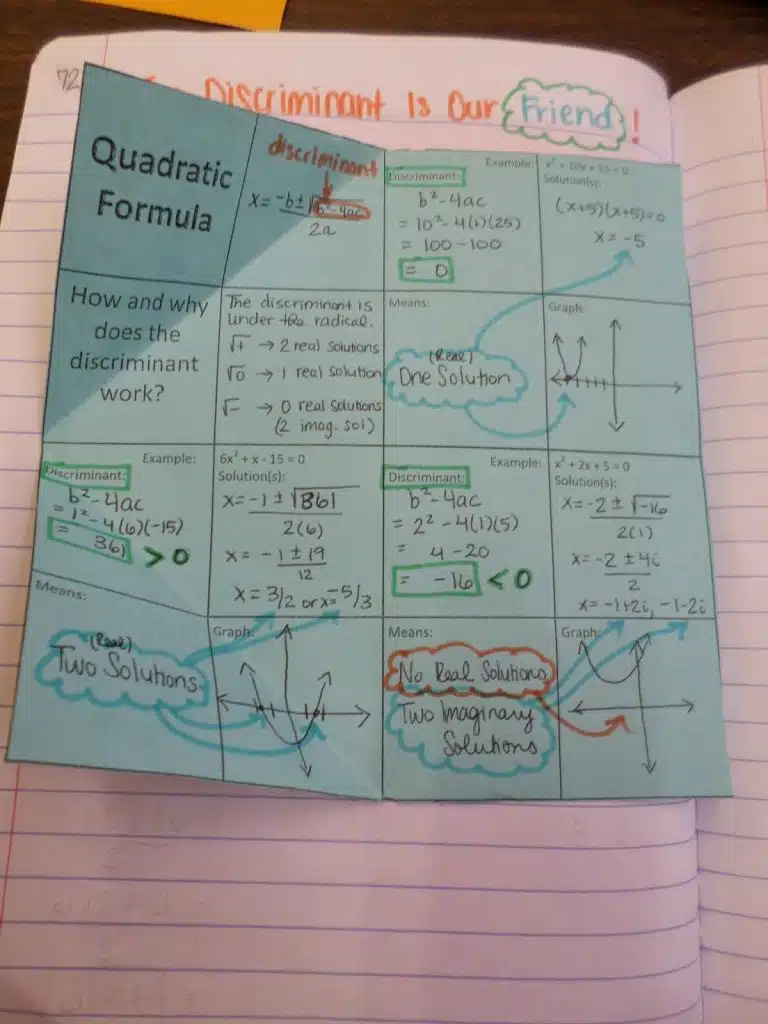 72
Discriminant Is Our Friend!
Quadratic
Formula
discriminant
x = -b ± √b²-4ac
2a
Example: x² + 10x + 25 = 0
Discriminant:
b²-4ac
= 10² - 4(1)(25)
= 100 - 100
= 0
Solution(s):
(x+5)(x+5)=0
x = -5
How and why
does the
discriminant
work?
The discriminant is
under the radical.
√+ → 2 real solutions
√0 → 1 real solution
√- → 0 real solutions
(2 imag. sol)
Means:
(Real)
One Solution
Graph:
Example: 6x² + x - 15 = 0
Discriminant:
b²-4ac
= 1² - 4(6)(-15)
= 361 > 0
Solution(s):
x = -1 ± √361
2(6)
x = -1 ± 19
12
x = 3/2 or x = -5/3
Example: x² + 2x + 5 = 0
Discriminant:
b²-4ac
= 2² - 4(1)(5)
= 4 - 20
= -16 < 0
Solution(s):
x = -2 ± √-16
2(1)
x = -2 ± 4i
2
x = -1+2i, -1-2i
Means:
(Real)
Two Solutions
Graph:
Means:
No Real Solutions
Two Imaginary
Solutions
Graph: